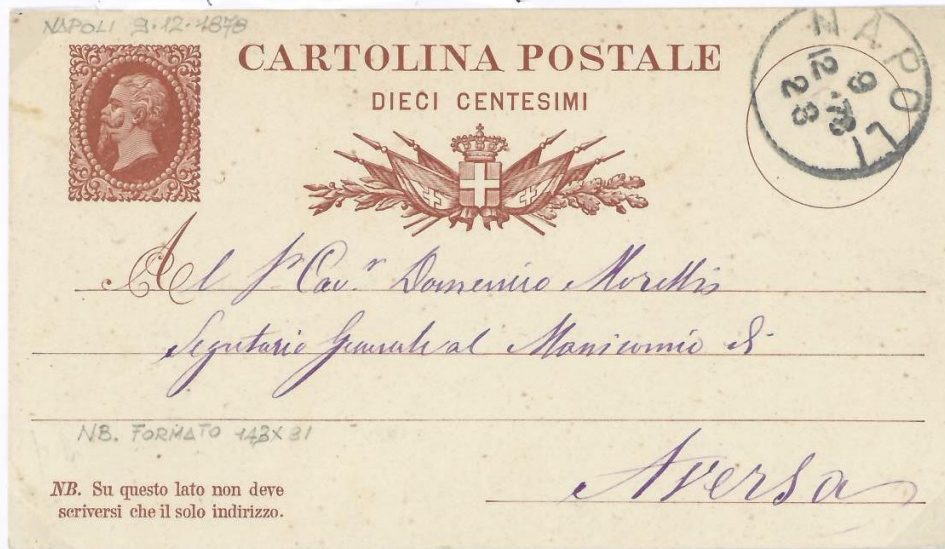 NAPOLI 9.12.1878
CARTOLINA POSTALE
DIECI CENTESIMI
NAPOLI
9
12-78
2 S
Al Sr Cav.r Domenico Morettis
Segretario Generale al Manicomio di
NB. FORMATO 143X81
Aversa
NB. Su questo lato non deve
scriversi che il solo indirizzo.